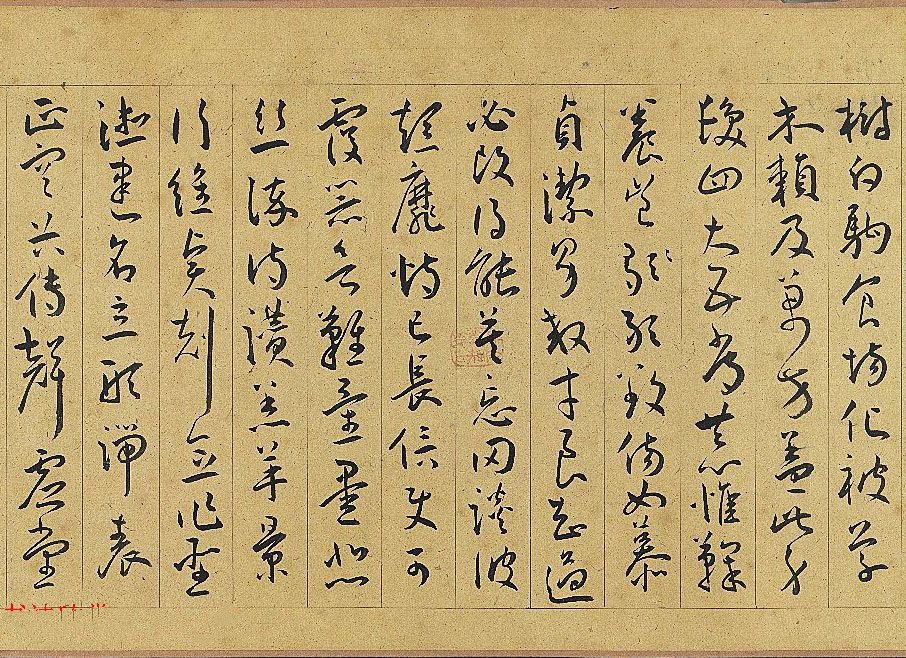 樹白駒食場化被草
木賴及萬方蓋此身
髮四大五常恭惟鞠
養豈敢敢毀傷女慕
貞潔男效才良知過
必改得能莫忘罔談彼
短靡恃己長信使可
覆器欲難量墨悲
絲染詩讚羔羊景
行維賢剋念作聖
德建名立形端表
正空谷傳聲虛堂